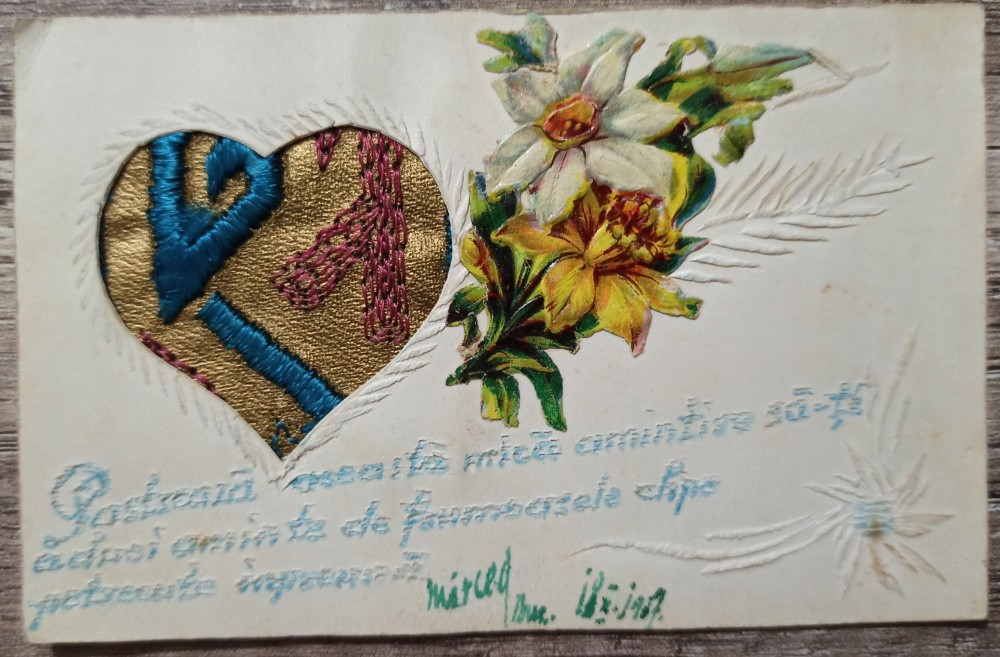 Păstrează această mică amintire să-ți
aduci aminte de frumoasele clipe
petrecute împreună
Mircea
Buc. 18.X.1907.